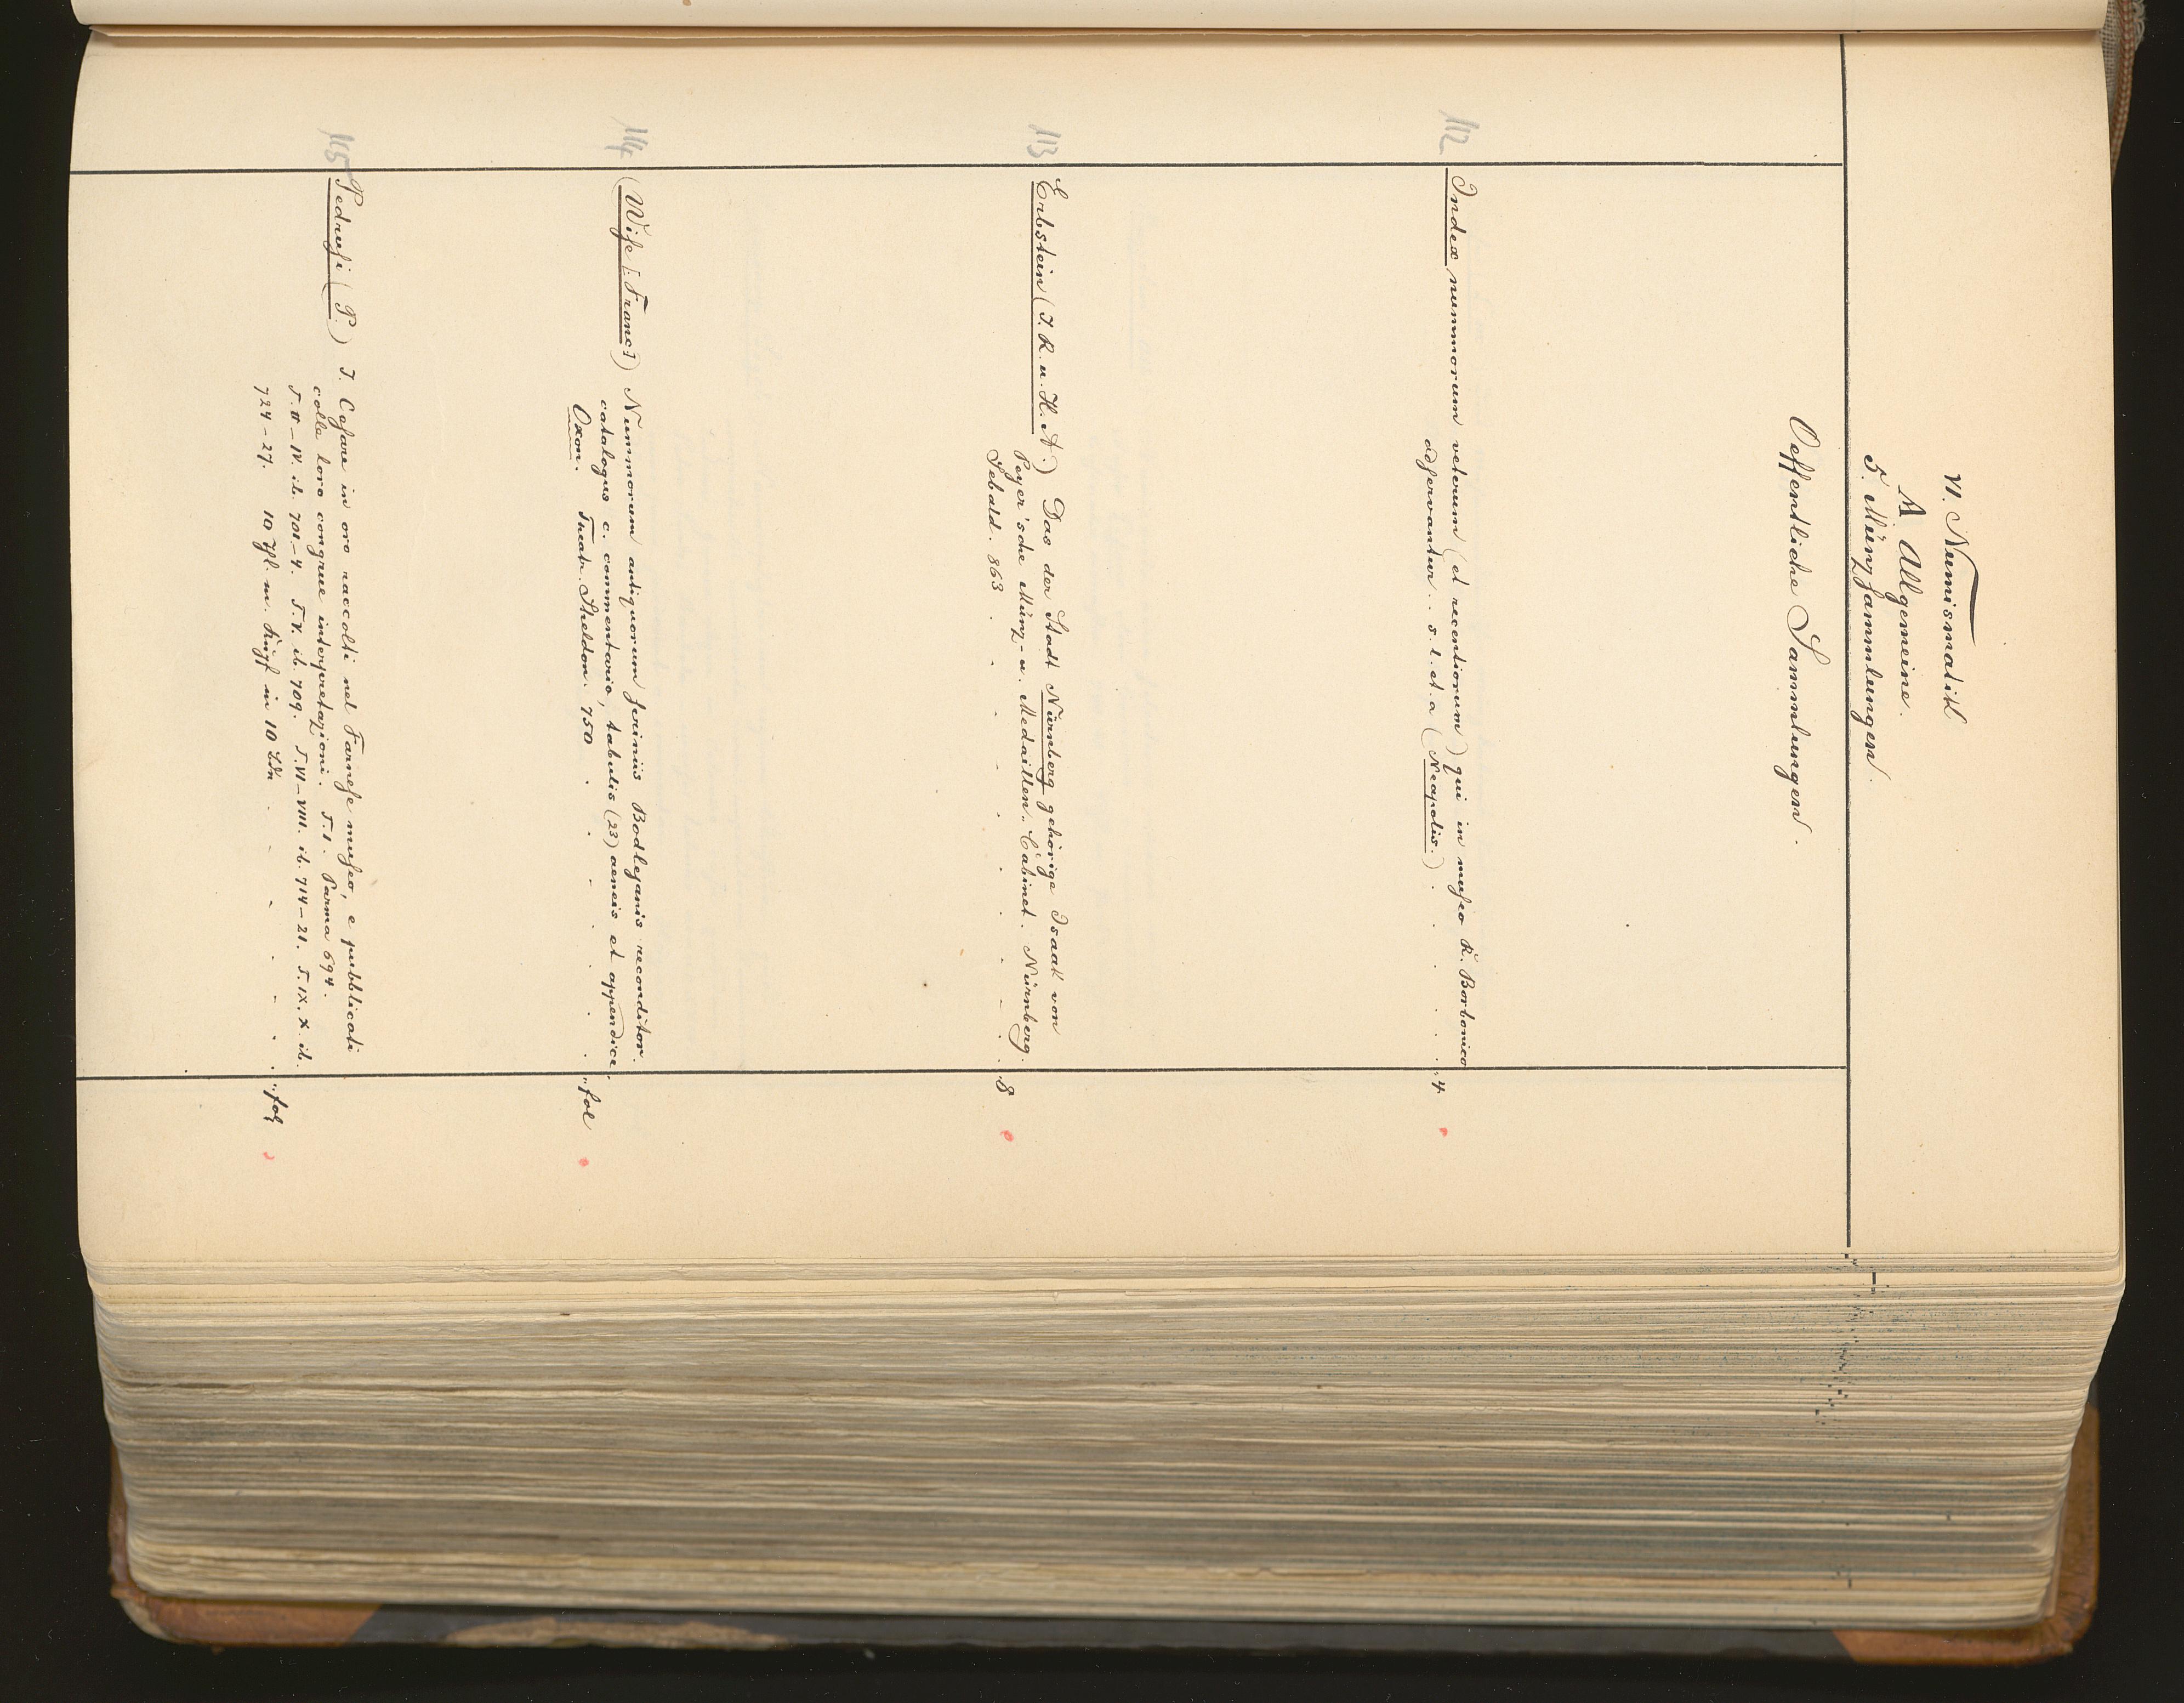 VI. Numismatik
A Allgemeine.
5. Münzsammlungen.
Oeffentliche Sammlungen.
112 Index nummorum veterum (et recentiorum) qui in museo R. Borbonico
adservantur.. s. l. et. a (Neapolis.) . . . . . 4
113 Erbstein (J. R. u. H. A.) Das der Stadt Nürnberg gehörige Isaak von
Peyer'sche Münz- u. Medaillen-Cabinet. Nürnberg.
Sebald. 863 . . . . . . . . . 8
114 (Wise [: Franc]) Nummorum antiquorum scriniis Bodlejanis reconditor.
catalogus c. commentario, tabulis (23) aeneis et appendice.
Oxon. Theatr. Sheldon. 750 . . . . . . fol
115 Pedrusi (P.) I. Cesare in oro raccolti nel Farnese museo, e pubblicati
colle loro congrue interpretazioni. T. I. Parma 694.
T. II–IV. ib. 701–4. T. V. ib. 709. T. VI–VIII. ib. 714–21. T. IX. X ib.
724–27. 10 Thl. m. Kupf in 10 Bdn . . . . . . fol